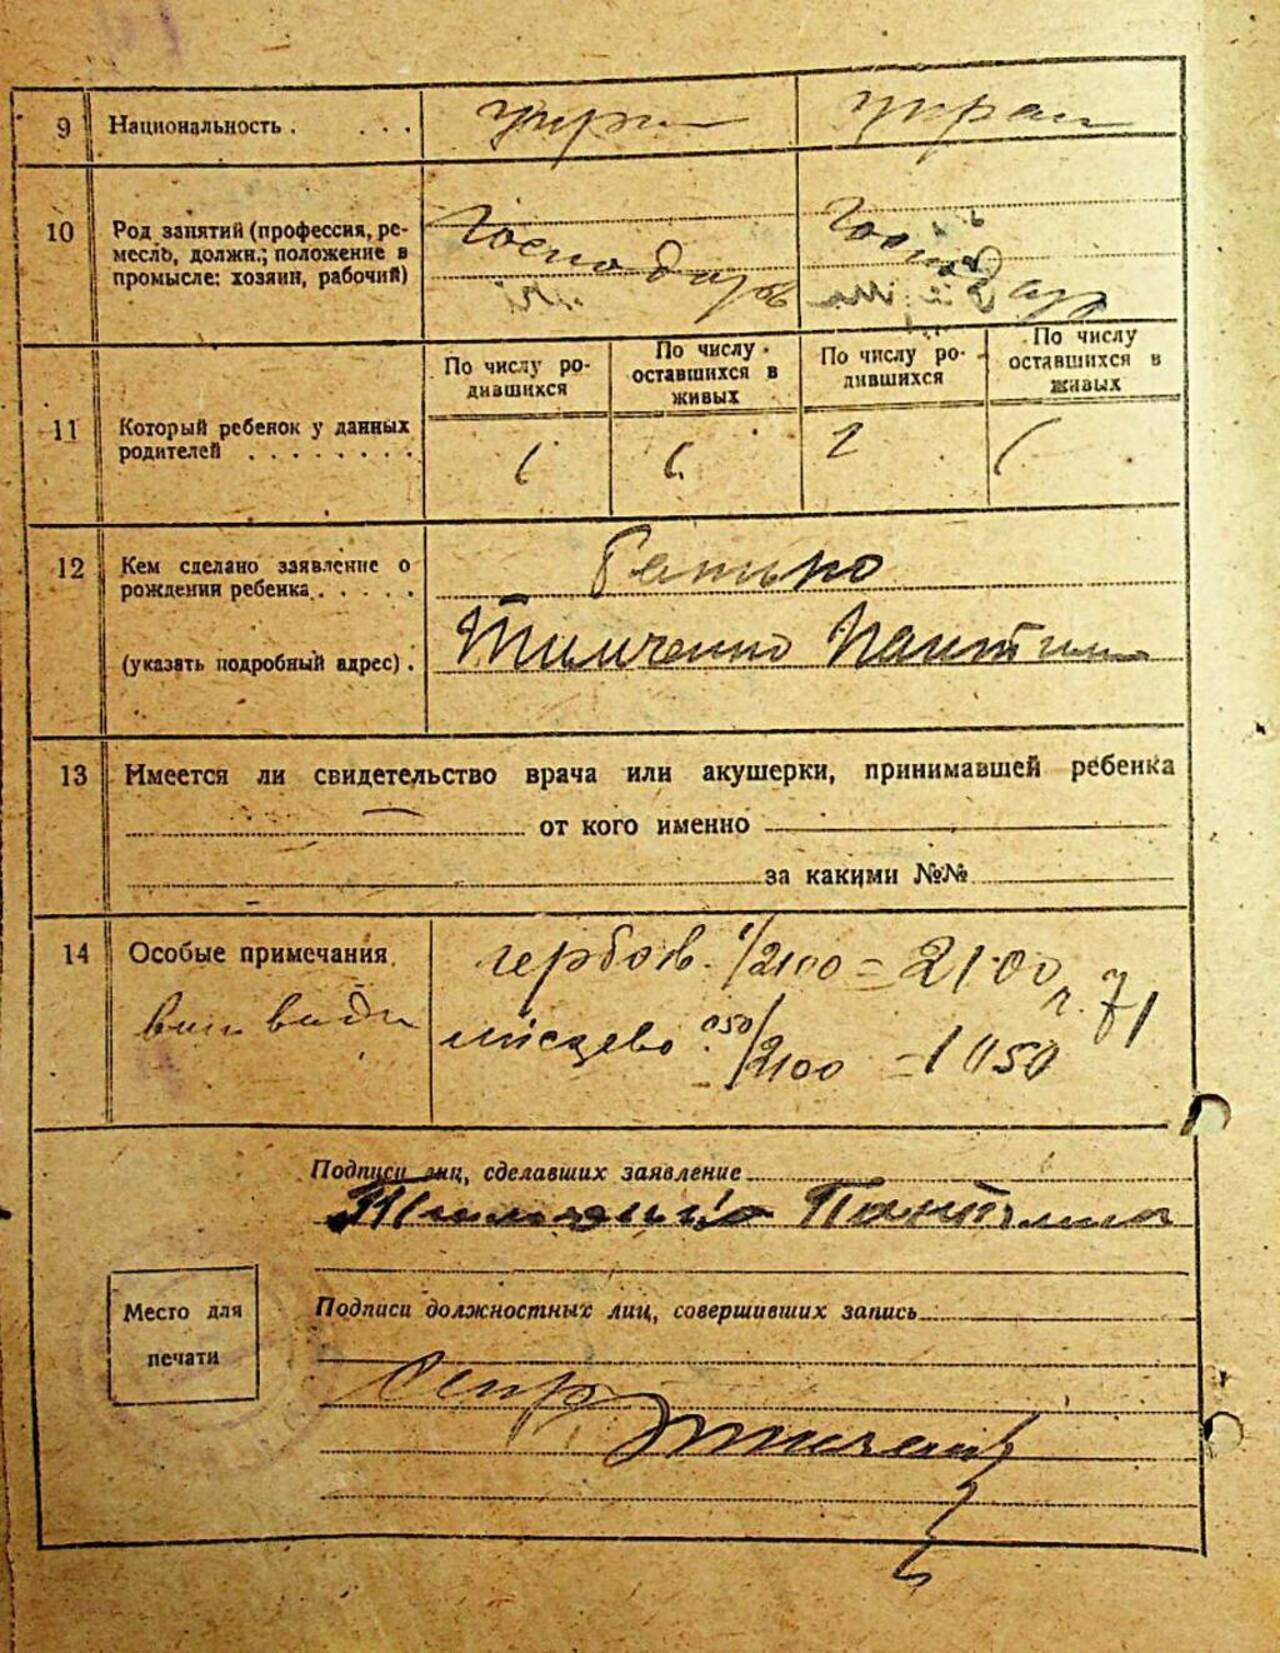 9 Национальность . . . . укр укра
10 Род занятий (профессия, ре-
месль, должн.; положение в
промысле: хозяин, рабочий)
Господарь Господар
11 Который ребенок у данных
родителей . . . . . . . .
По числу ро-
дившихся
По числу
оставшихся в
живых
По числу ро-
дившихся
По числу
оставшихся в
живых
1 1 2 1
12 Кем сделано заявление о
рождении ребенка . . . . .
Батько
(указать подробный адрес) .
Тимченко
13 Имеется ли свидетельство врача или акушерки, принимавшей ребенка
от кого именно
за какими №№
14 Особые примечания.
гербов. 1/2100 = 2100
місцево 050/2100 = 1050
Подписи лиц, сделавших заявление
Тимченко
Место для
печати
Подписи должностных лиц, совершивших запись